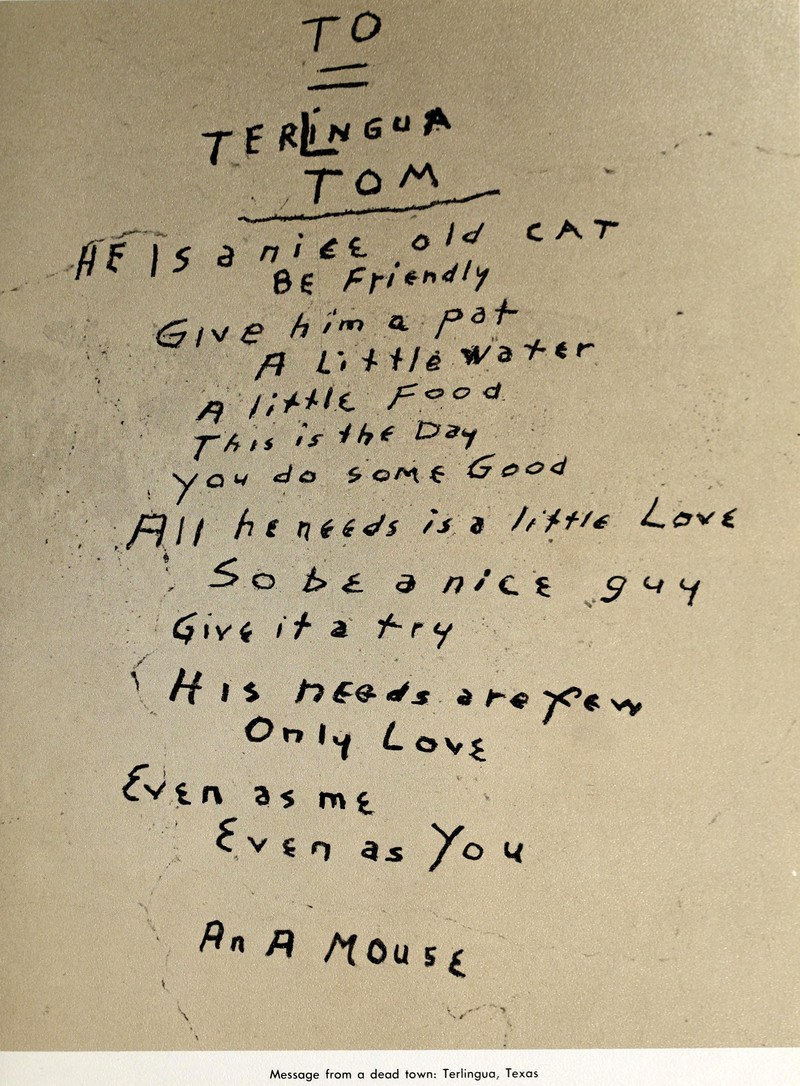 TO
TERLINGUA
TOM
HE IS a nice old CAT
BE Friendly
Give him a pat
A Little water
A little Food
This is the Day
you do soMe Good
All he needs is a little Love
So be a nice guy
Give it a try
His needs are few
Only Love
Even as me
Even as You
An A MOUSE
Message from a dead town: Terlingua, Texas